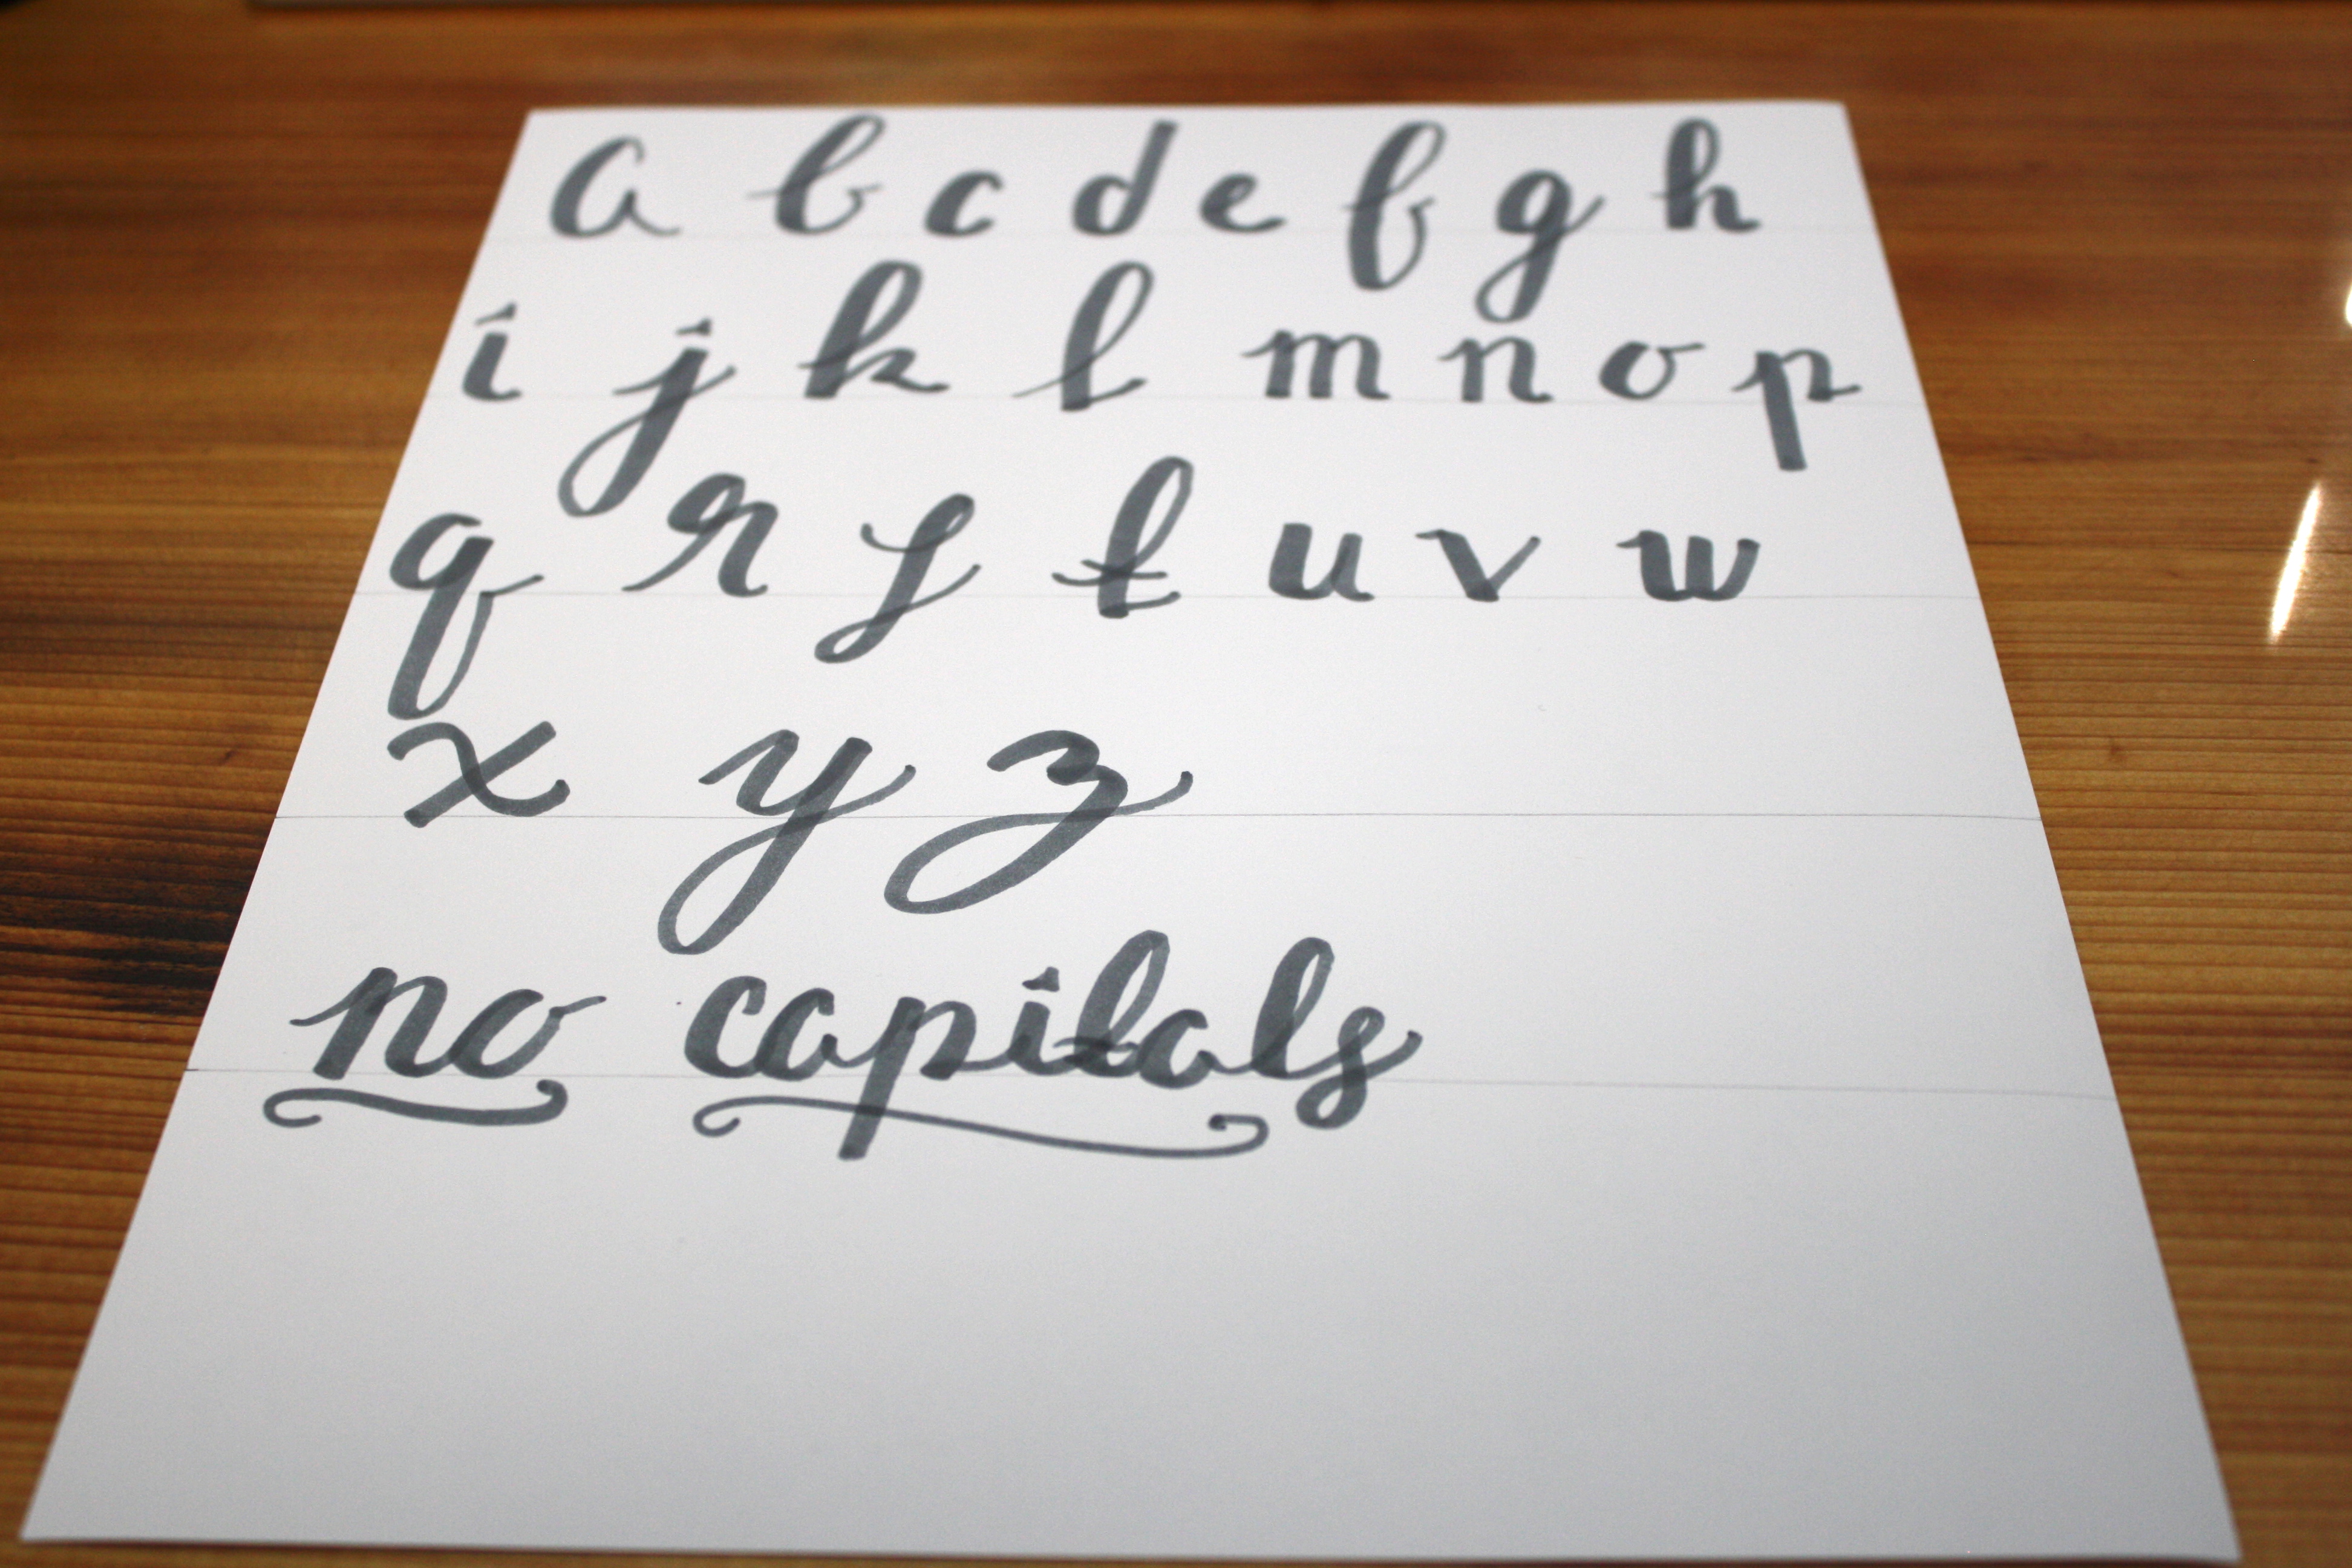 a b c d e f g h
i j k l m n o p
q r s t u v w
x y z
no capitals